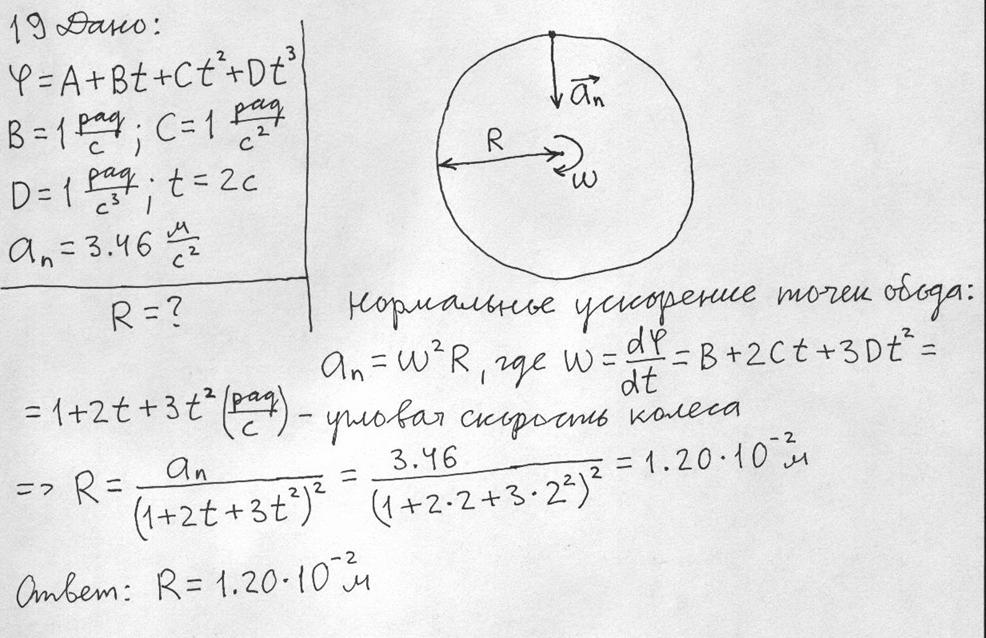 19 Дано:
φ = A + Bt + Ct² + Dt³
B = 1 рад/с ; C = 1 рад/с²
D = 1 рад/с³ ; t = 2с
aₙ = 3.46 м/с²
R = ?
R
aₙ
ω
нормальное ускорение точек обода:
aₙ = ω²R, где ω = dφ/dt = B + 2Ct + 3Dt² =
= 1 + 2t + 3t² (рад/с) – угловая скорость колеса
=> R = aₙ/(1+2t+3t²)² = 3.46/(1+2·2+3·2²)² = 1.20·10⁻² м
Ответ: R = 1.20·10⁻² м